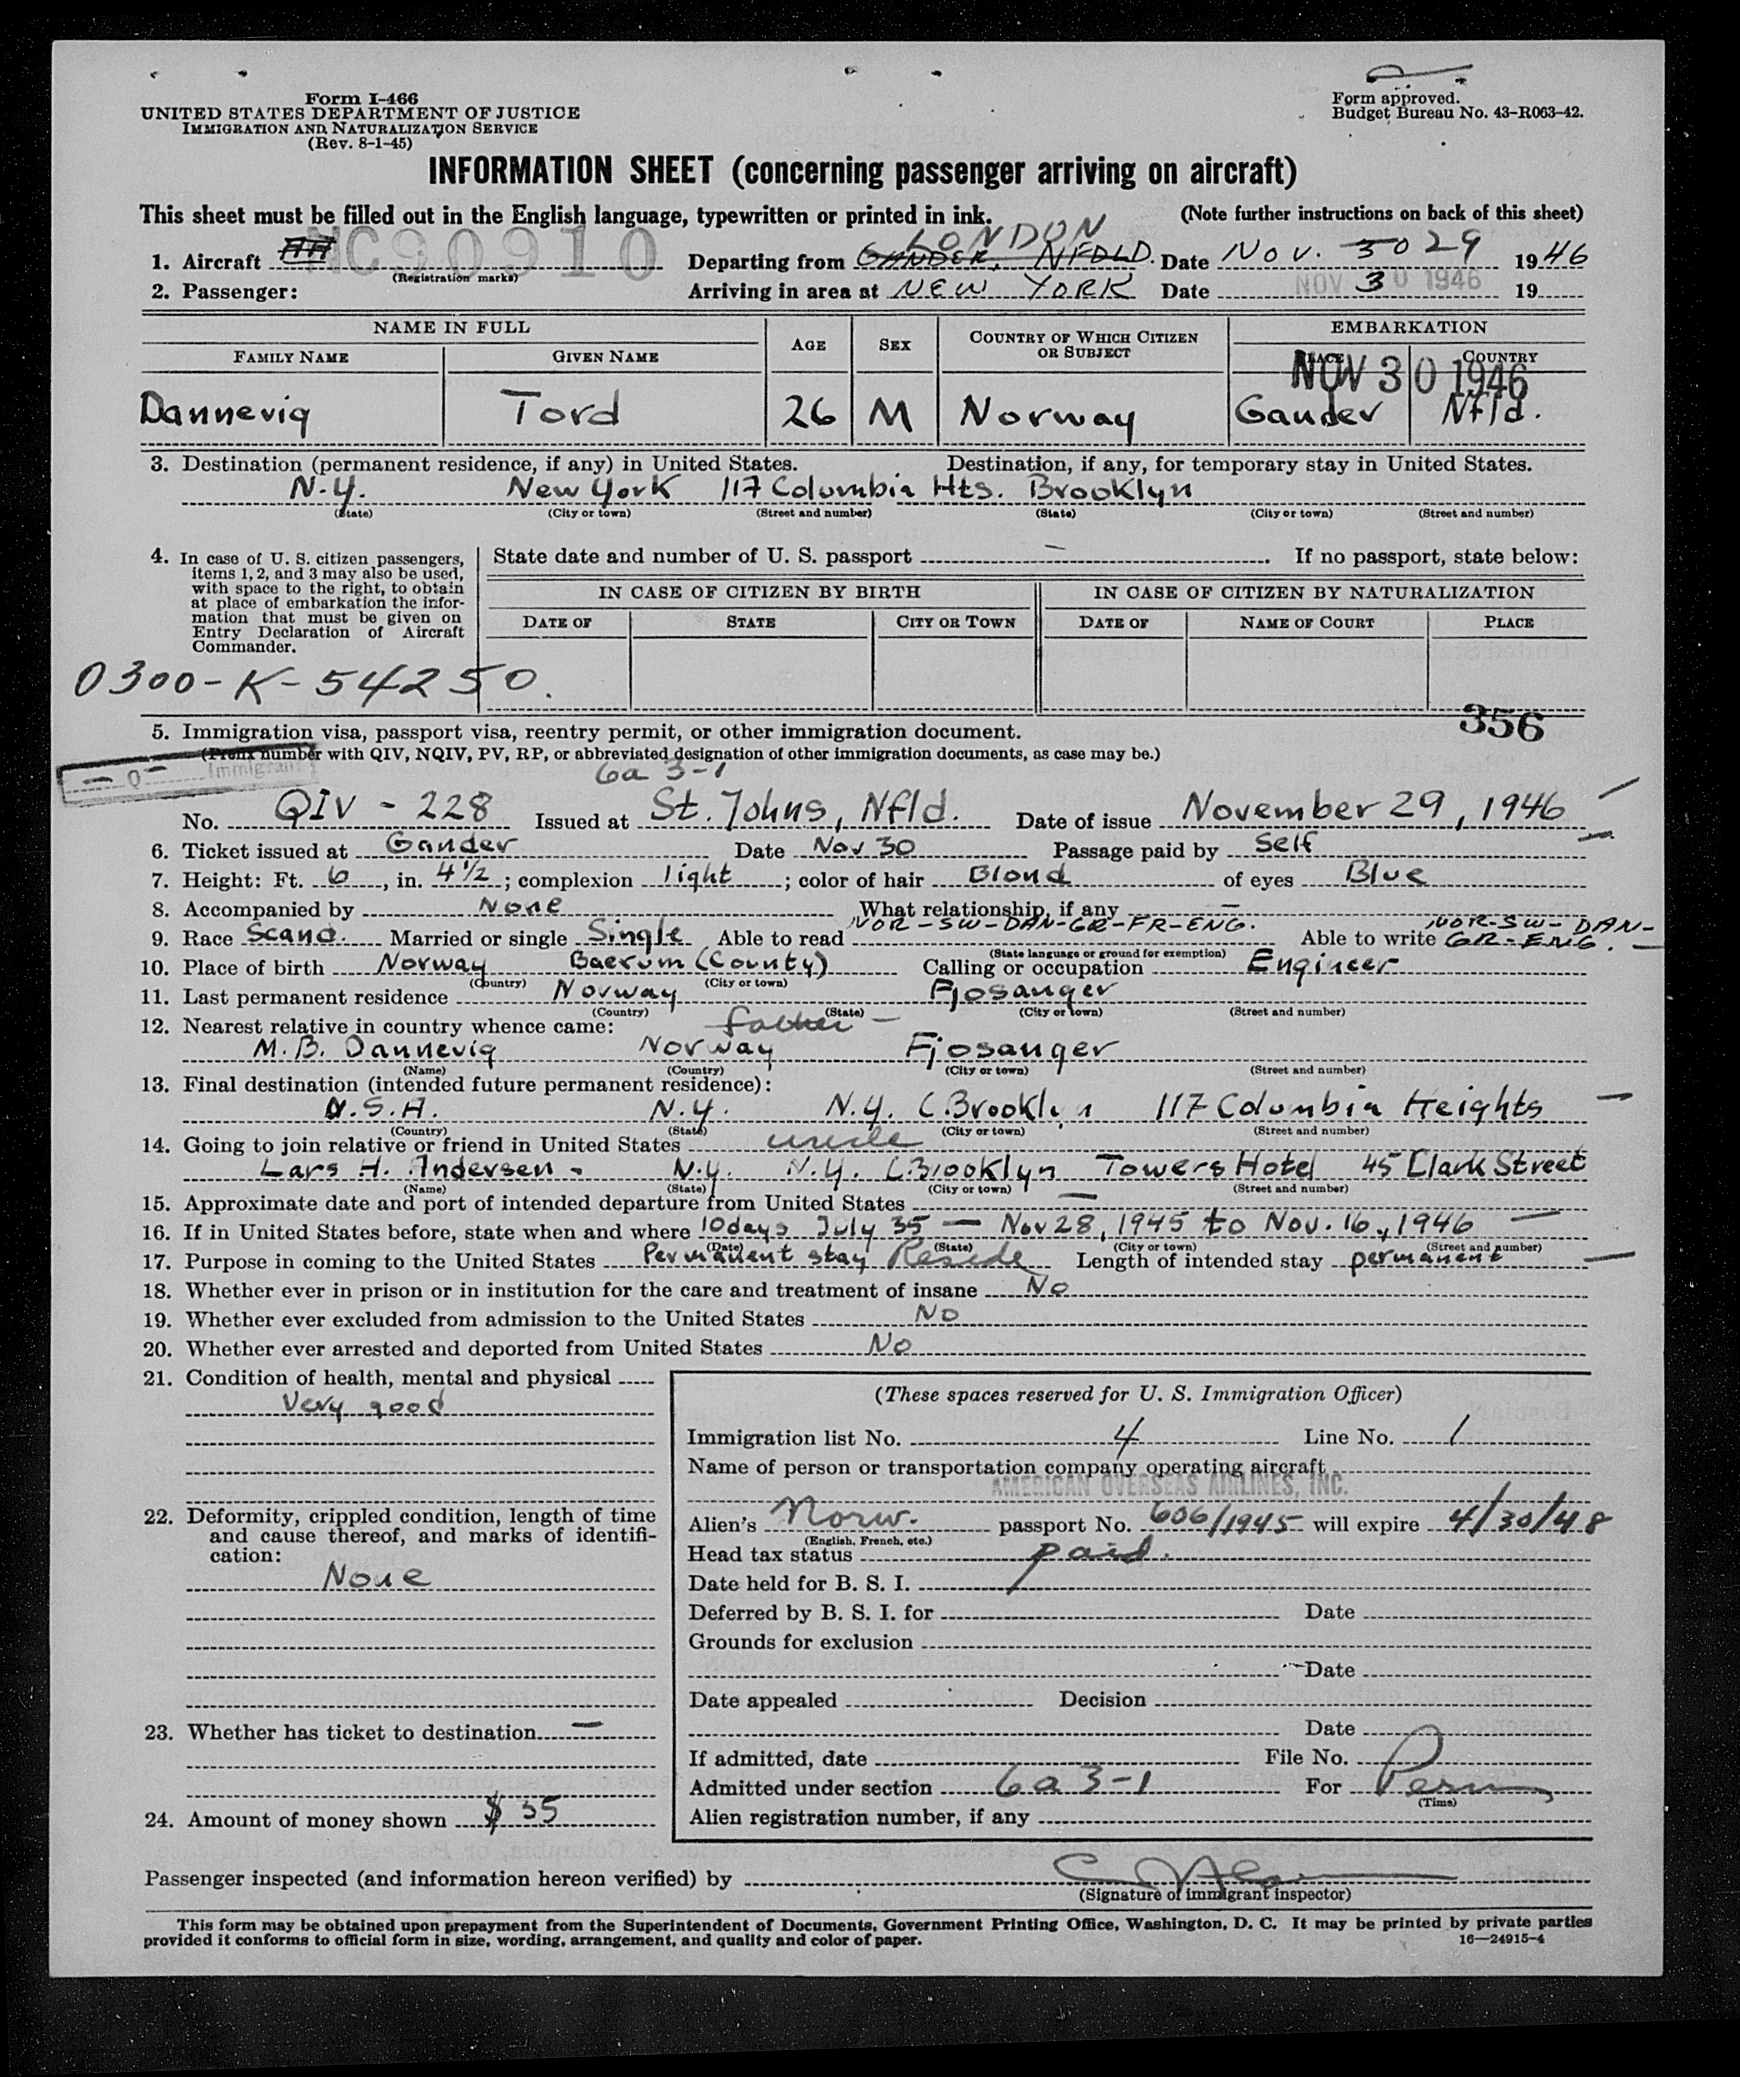 Form I-466
UNITED STATES DEPARTMENT OF JUSTICE
IMMIGRATION AND NATURALIZATION SERVICE
(Rev. 8-1-45)
Form approved.
Budget Bureau No. 43-R063-42.
INFORMATION SHEET (concerning passenger arriving on aircraft)
This sheet must be filled out in the English language, typewritten or printed in ink. (Note further instructions on back of this sheet)
LONDON
1. Aircraft NC90910 Departing from GANDER, NFDLD. Date Nov. 30 29 1946
(Registration marks)
2. Passenger: Arriving in area at NEW YORK Date NOV 30 1946 19
NAME IN FULL AGE SEX COUNTRY OF WHICH CITIZEN OR SUBJECT EMBARKATION
FAMILY NAME GIVEN NAME PLACE COUNTRY
NOV 30 1946
Dannevig Tord 26 M Norway Gander Nfld.
3. Destination (permanent residence, if any) in United States. Destination, if any, for temporary stay in United States.
N.Y. New York 117 Columbia Hts. Brooklyn
(State) (City or town) (Street and number) (State) (City or town) (Street and number)
4. In case of U. S. citizen passengers, items 1, 2, and 3 may also be used, with space to the right, to obtain at place of embarkation the information that must be given on Entry Declaration of Aircraft Commander.
State date and number of U. S. passport — . If no passport, state below:
IN CASE OF CITIZEN BY BIRTH IN CASE OF CITIZEN BY NATURALIZATION
DATE OF STATE CITY OR TOWN DATE OF NAME OF COURT PLACE
0300-K-54250.
356
5. Immigration visa, passport visa, reentry permit, or other immigration document.
(Prefix number with QIV, NQIV, PV, RP, or abbreviated designation of other immigration documents, as case may be.)
— Q — Immigrant
6a 3-1
No. QIV - 228 Issued at St. Johns, Nfld. Date of issue November 29, 1946
6. Ticket issued at Gander Date Nov 30 Passage paid by Self
7. Height: Ft. 6, in. 4 1/2; complexion light; color of hair Blond of eyes Blue
8. Accompanied by None What relationship, if any —
9. Race Scand. Married or single Single Able to read NOR-SW-DAN-GR-FR-ENG. Able to write NOR-SW-DAN-GR-ENG.
(State language or ground for exemption)
10. Place of birth Norway Baerum (County) Calling or occupation Engineer
(Country) (City or town)
11. Last permanent residence Norway Fjosanger
(Country) (State) (City or town) (Street and number)
12. Nearest relative in country whence came: father —
M. B. Dannevig Norway Fjosanger
(Name) (Country) (City or town) (Street and number)
13. Final destination (intended future permanent residence):
U.S.A. N.Y. N.Y. (Brooklyn 117 Columbia Heights
(Country) (State) (City or town) (Street and number)
14. Going to join relative or friend in United States uncle
Lars H. Andersen - N.Y. N.Y. (Brooklyn Towers Hotel 45 Clark Street
(Name) (State) (City or town) (Street and number)
15. Approximate date and port of intended departure from United States —
16. If in United States before, state when and where 10 days July 35 — Nov 28, 1945 to Nov. 16, 1946
(Date) (State) (City or town) (Street and number)
17. Purpose in coming to the United States Permanent stay Reside Length of intended stay permanent
18. Whether ever in prison or in institution for the care and treatment of insane No
19. Whether ever excluded from admission to the United States No
20. Whether ever arrested and deported from United States No
21. Condition of health, mental and physical
Very good
22. Deformity, crippled condition, length of time and cause thereof, and marks of identification:
None
23. Whether has ticket to destination —
24. Amount of money shown $ 35
(These spaces reserved for U. S. Immigration Officer)
Immigration list No. 4 Line No. 1
Name of person or transportation company operating aircraft
AMERICAN OVERSEAS AIRLINES, INC.
Alien's Norw. passport No. 606/1945 will expire 4/30/48
(English, French, etc.)
Head tax status paid.
Date held for B. S. I.
Deferred by B. S. I. for Date
Grounds for exclusion
Date
Date appealed Decision
Date
If admitted, date File No.
Admitted under section 6a 3-1 For Perm
(Time)
Alien registration number, if any
Passenger inspected (and information hereon verified) by
(Signature of immigrant inspector)
This form may be obtained upon prepayment from the Superintendent of Documents, Government Printing Office, Washington, D. C. It may be printed by private parties
provided it conforms to official form in size, wording, arrangement, and quality and color of paper. 16—24915-4